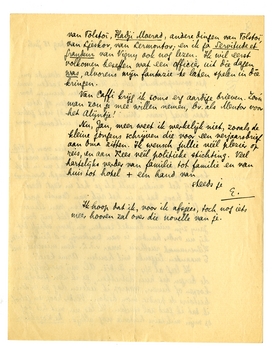 van Tolstoi, Hadji Moerad, andere dingen van Tolstoi,
van Ljeskov, van Lermontov, en ik ga Servitude et
Grandeur van Vigny ook nog lezen. Ik wil eerst
volkomen beseffen wat een officier uit die dagen
was, alvorens mijn fantazie te laten spelen in die
kringen.
Van Caffi krijg ik soms erg aardige brieven. Zoo'n
man zou je mee willen nemen, bv. als Mentor voor
het Alijntje!
Nu, Jan, meer weet ik werkelijk niet, zooals de
kleine jongens schrijven die voor een verjaarsbrief
aan oma zitten. Ik wensch jullie veel plezier op
reis, en aan Kees veel politieke stichting. Veel
hartelijks verder van familie tot familie en van
huis tot hotel + een hand van
steeds je
E.
Ik hoop dat ik, voor ik afreis, toch nog iets
meer hooren zal over die novelle van je.